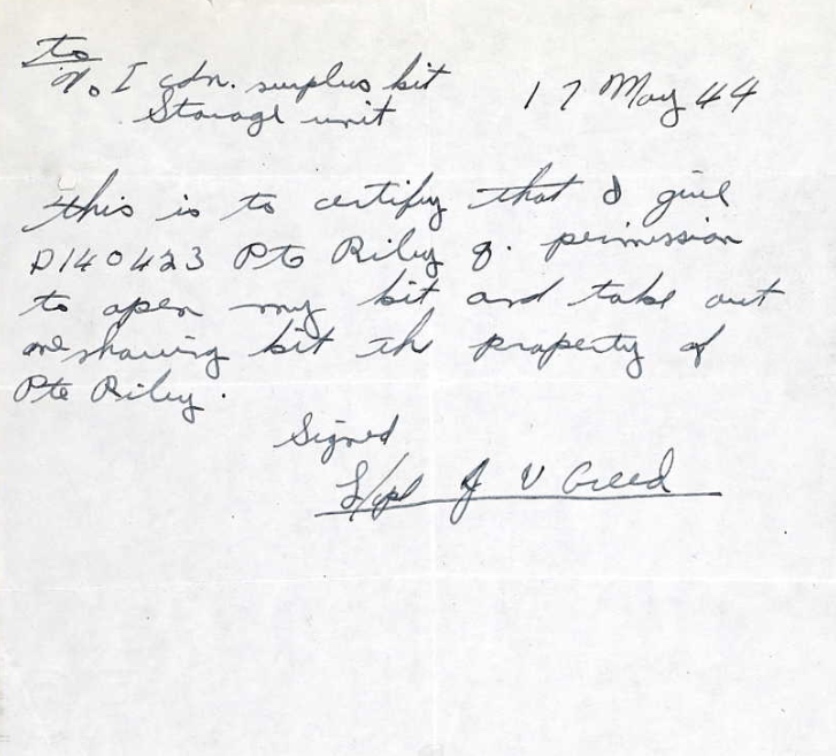 to
No I cdn. surplus kit
Storage unit
17 May 44
this is to certify that I give
D140423 Pte Riley J. permission
to open my kit and take out
one shaving kit the property of
Pte Riley.
Signed
L/cpl J V Creed